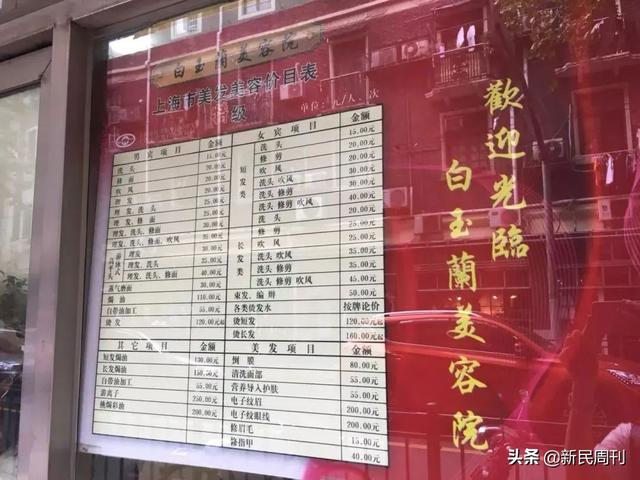 白玉蘭美容院
上海市美发美容价目表
级
单位：元/人、次
男宾项目 金额
洗头 15.00元
修面 20.00元
吹风 20.00元
理发 20.00元
理发、洗头 25.00元
理发、修面 25.00元
理发、洗头、修面 30.00元
理发、洗头、修面、吹风
理发 30.00元
理发、洗头 35.00元
理发、洗头、修面 40.00元
蒸气磨面 30.00元
焗油 110.00元
自带油加工 55.00元
烫发 120.00元起
女宾项目 金额
短发类
洗头 15.00元
修剪 20.00元
吹风 20.00元
洗头 吹风 30.00元
洗头 修剪 30.00元
洗头 修剪 吹风 40.00元
长发类
洗头 20.00元
修剪
吹风 25.00元
洗头 吹风 35.00元
洗头 修剪 35.00元
洗头 修剪 吹风 45.00元
束发、编辫 50.00元
各类烫发水 按牌论价
烫短发 120.00元起
烫长发 160.00元起
其它项目 金额
短发焗油 130.00元
长发焗油 150.00元
自带油加工 55.00元
游离子 250.00元
挑焗彩油 200.00元
美发项目 金额
倒膜 80.00元
清洗面部 55.00元
营养导入护肤 55.00元
电子纹眉 200.00元
电子纹眼线 200.00元
修眉毛 15.00元
修指甲 40.00元
歡迎光臨
白玉蘭美容院
头条 @新民周刊